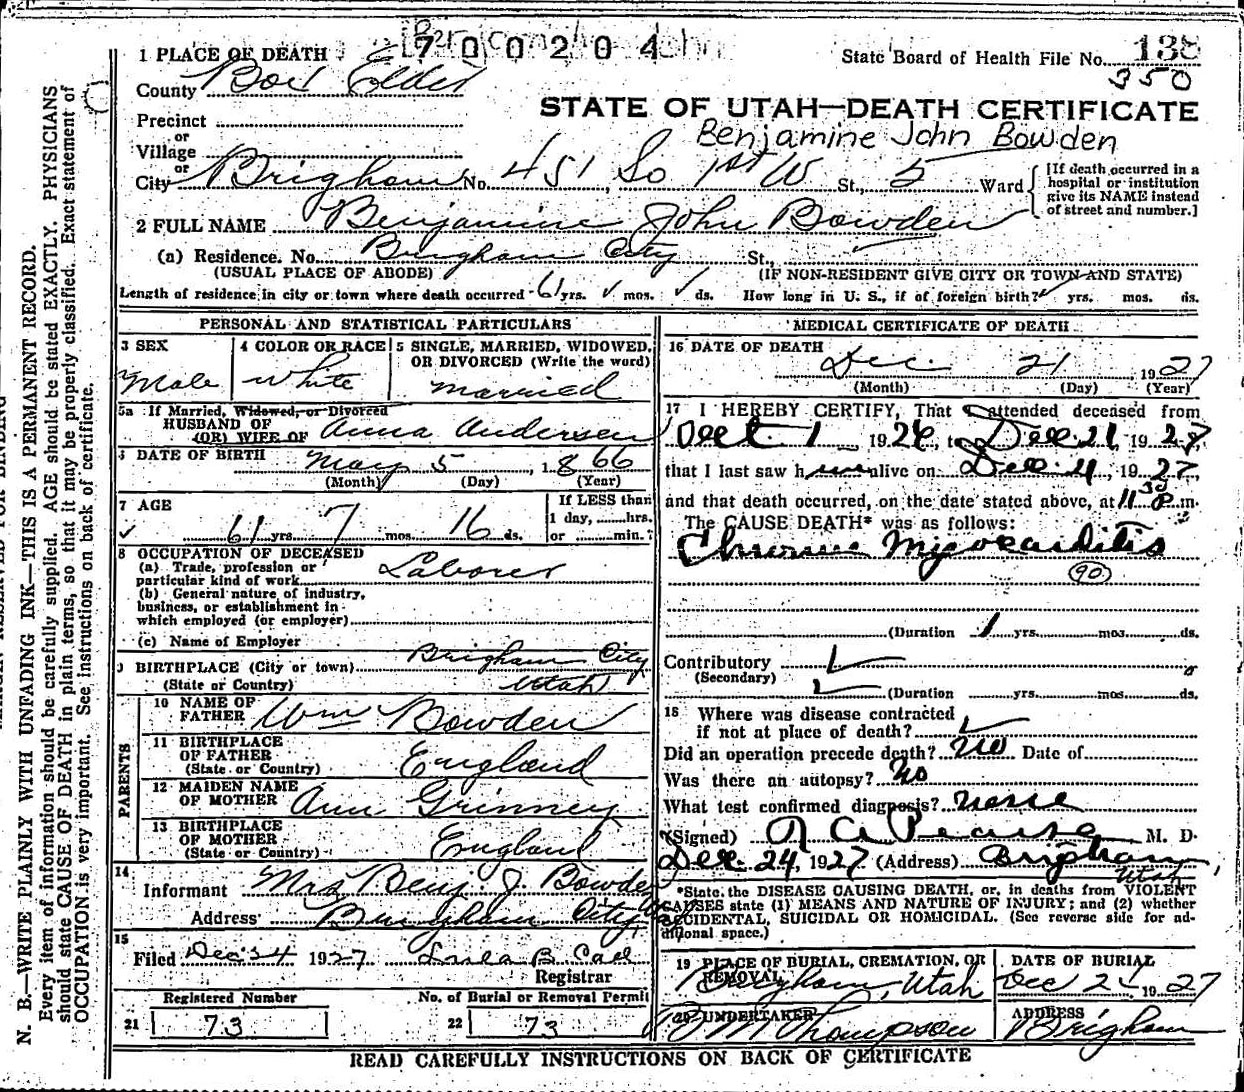 700204
1 PLACE OF DEATH
State Board of Health File No. 138
350
County Box Elder
STATE OF UTAH—DEATH CERTIFICATE
Precinct
or
Village
Benjamine John Bowden
or
City Brigham No. 451 So 1st W St., 5 Ward
[If death occurred in a hospital or institution give its NAME instead of street and number.]
2 FULL NAME Benjamine John Bowden
(a) Residence. No. Brigham City St.,
(USUAL PLACE OF ABODE) (IF NON-RESIDENT GIVE CITY OR TOWN AND STATE)
Length of residence in city or town where death occurred 61 yrs. ✓ mos. ✓ ds. How long in U. S., if of foreign birth? ✓ yrs. mos. ds.
PERSONAL AND STATISTICAL PARTICULARS
3 SEX
Male
4 COLOR OR RACE
White
5 SINGLE, MARRIED, WIDOWED, OR DIVORCED (Write the word)
married
5a If Married, Widowed, or Divorced
HUSBAND OF
(OR) WIFE OF Anna Andersen
6 DATE OF BIRTH May 5, 1866
(Month) (Day) (Year)
7 AGE
61 yrs. 7 mos. 16 ds.
If LESS than
1 day, ......hrs.
or ......min.?
8 OCCUPATION OF DECEASED
(a) Trade, profession or
particular kind of work Laborer
(b) General nature of industry,
business, or establishment in
which employed (or employer)
(c) Name of Employer
9 BIRTHPLACE (City or town) Brigham City
(State or Country) Utah
PARENTS
10 NAME OF
FATHER Wm Bowden
11 BIRTHPLACE
OF FATHER
(State or Country) England
12 MAIDEN NAME
OF MOTHER Ann Grinney
13 BIRTHPLACE
OF MOTHER
(State or Country) England
14
Informant Mrs Benj. J. Bowden
Address Brigham City
15
Filed Dec 24 1927
Registrar
Registered Number
21 73
No. of Burial or Removal Permit
22 73
MEDICAL CERTIFICATE OF DEATH
16 DATE OF DEATH
Dec. 21 1927
(Month) (Day) (Year)
17 I HEREBY CERTIFY, That I attended deceased from
Oct 1 1926, to Dec. 21 1927,
that I last saw him alive on Dec. 21, 1927,
and that death occurred, on the date stated above, at 11 30 P. m.
The CAUSE DEATH* was as follows:
Chronic Myocarditis
90
(Duration 1 yrs. mos. ds.
Contributory ✓
(Secondary)
✓ (Duration yrs. mos. ds.
18 Where was disease contracted
if not at place of death? ✓
Did an operation precede death? no Date of
Was there an autopsy? no
What test confirmed diagnosis? none
(Signed) R A Pearse M. D.
Dec 24, 1927 (Address) Brigham
Utah
*State the DISEASE CAUSING DEATH, or, in deaths from VIOLENT
CAUSES state (1) MEANS AND NATURE OF INJURY; and (2) whether
ACCIDENTAL, SUICIDAL OR HOMICIDAL. (See reverse side for ad-
ditional space.)
19 PLACE OF BURIAL, CREMATION, OR
REMOVAL
Brigham, Utah
DATE OF BURIAL
Dec 24 1927
20 UNDERTAKER
M Thompson
ADDRESS
Brigham
READ CAREFULLY INSTRUCTIONS ON BACK OF CERTIFICATE
N. B.—WRITE PLAINLY WITH UNFADING INK—THIS IS A PERMANENT RECORD.
Every item of information should be carefully supplied. AGE should be stated EXACTLY. PHYSICIANS
should state CAUSE OF DEATH in plain terms, so that it may be properly classified. Exact statement of
OCCUPATION is very important. See instructions on back of certificate.